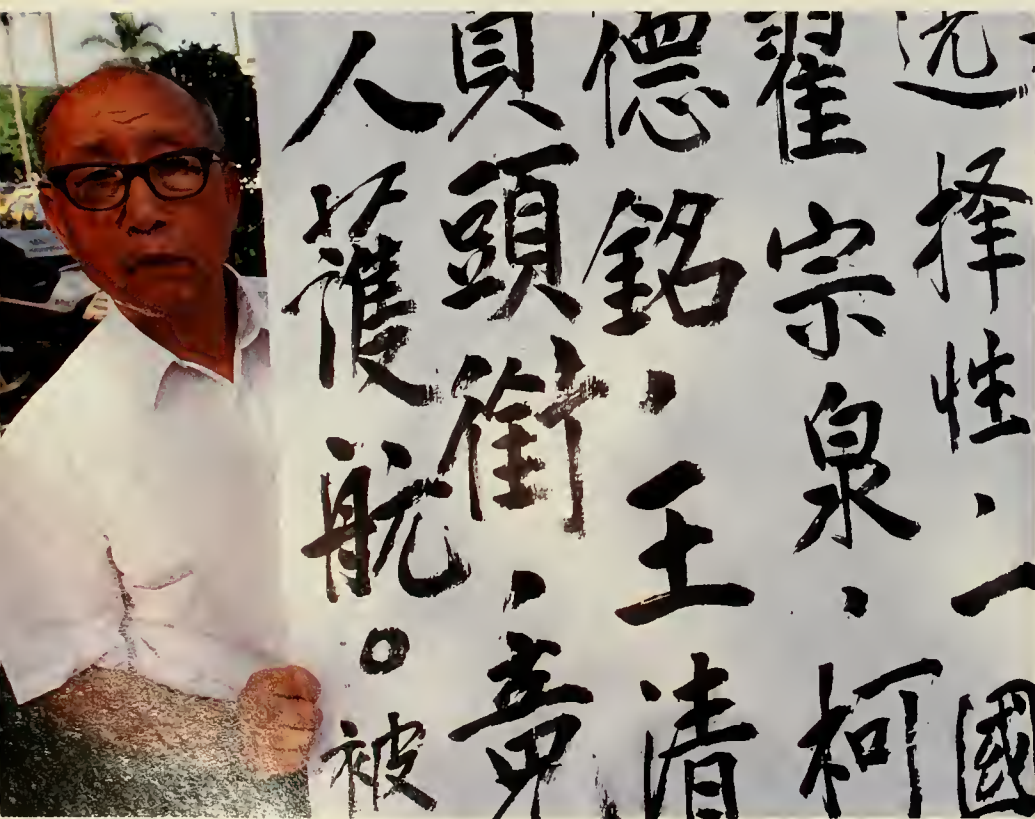 选择性、一國
翟宗泉、柯
德銘、王清
員頭銜、竟
人護航。被